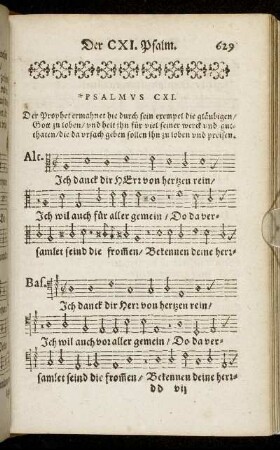 Der CXI. Psalm. 629
*PSALMVS CXI.
Der Prophet ermahnet hie durch sein exempel die gläubigen/
Gott zu loben/ und helt ihn für viel seiner werck und gut-
thaten/ die da ursach geben sollen ihn zu loben und preisen.
Alt.
Ich danck dir HErr von hertzen rein/
Ich wil auch für aller gemein/ Do da ver-
samlet seind die frommen/ Bekennen deine herr-
Bas.
Ich danck dir Herr von hertzen rein/
Ich wil auch vor aller gemein/ Do da ver-
samlet seind die frommen/ Bekennen deine herr-
dd vij